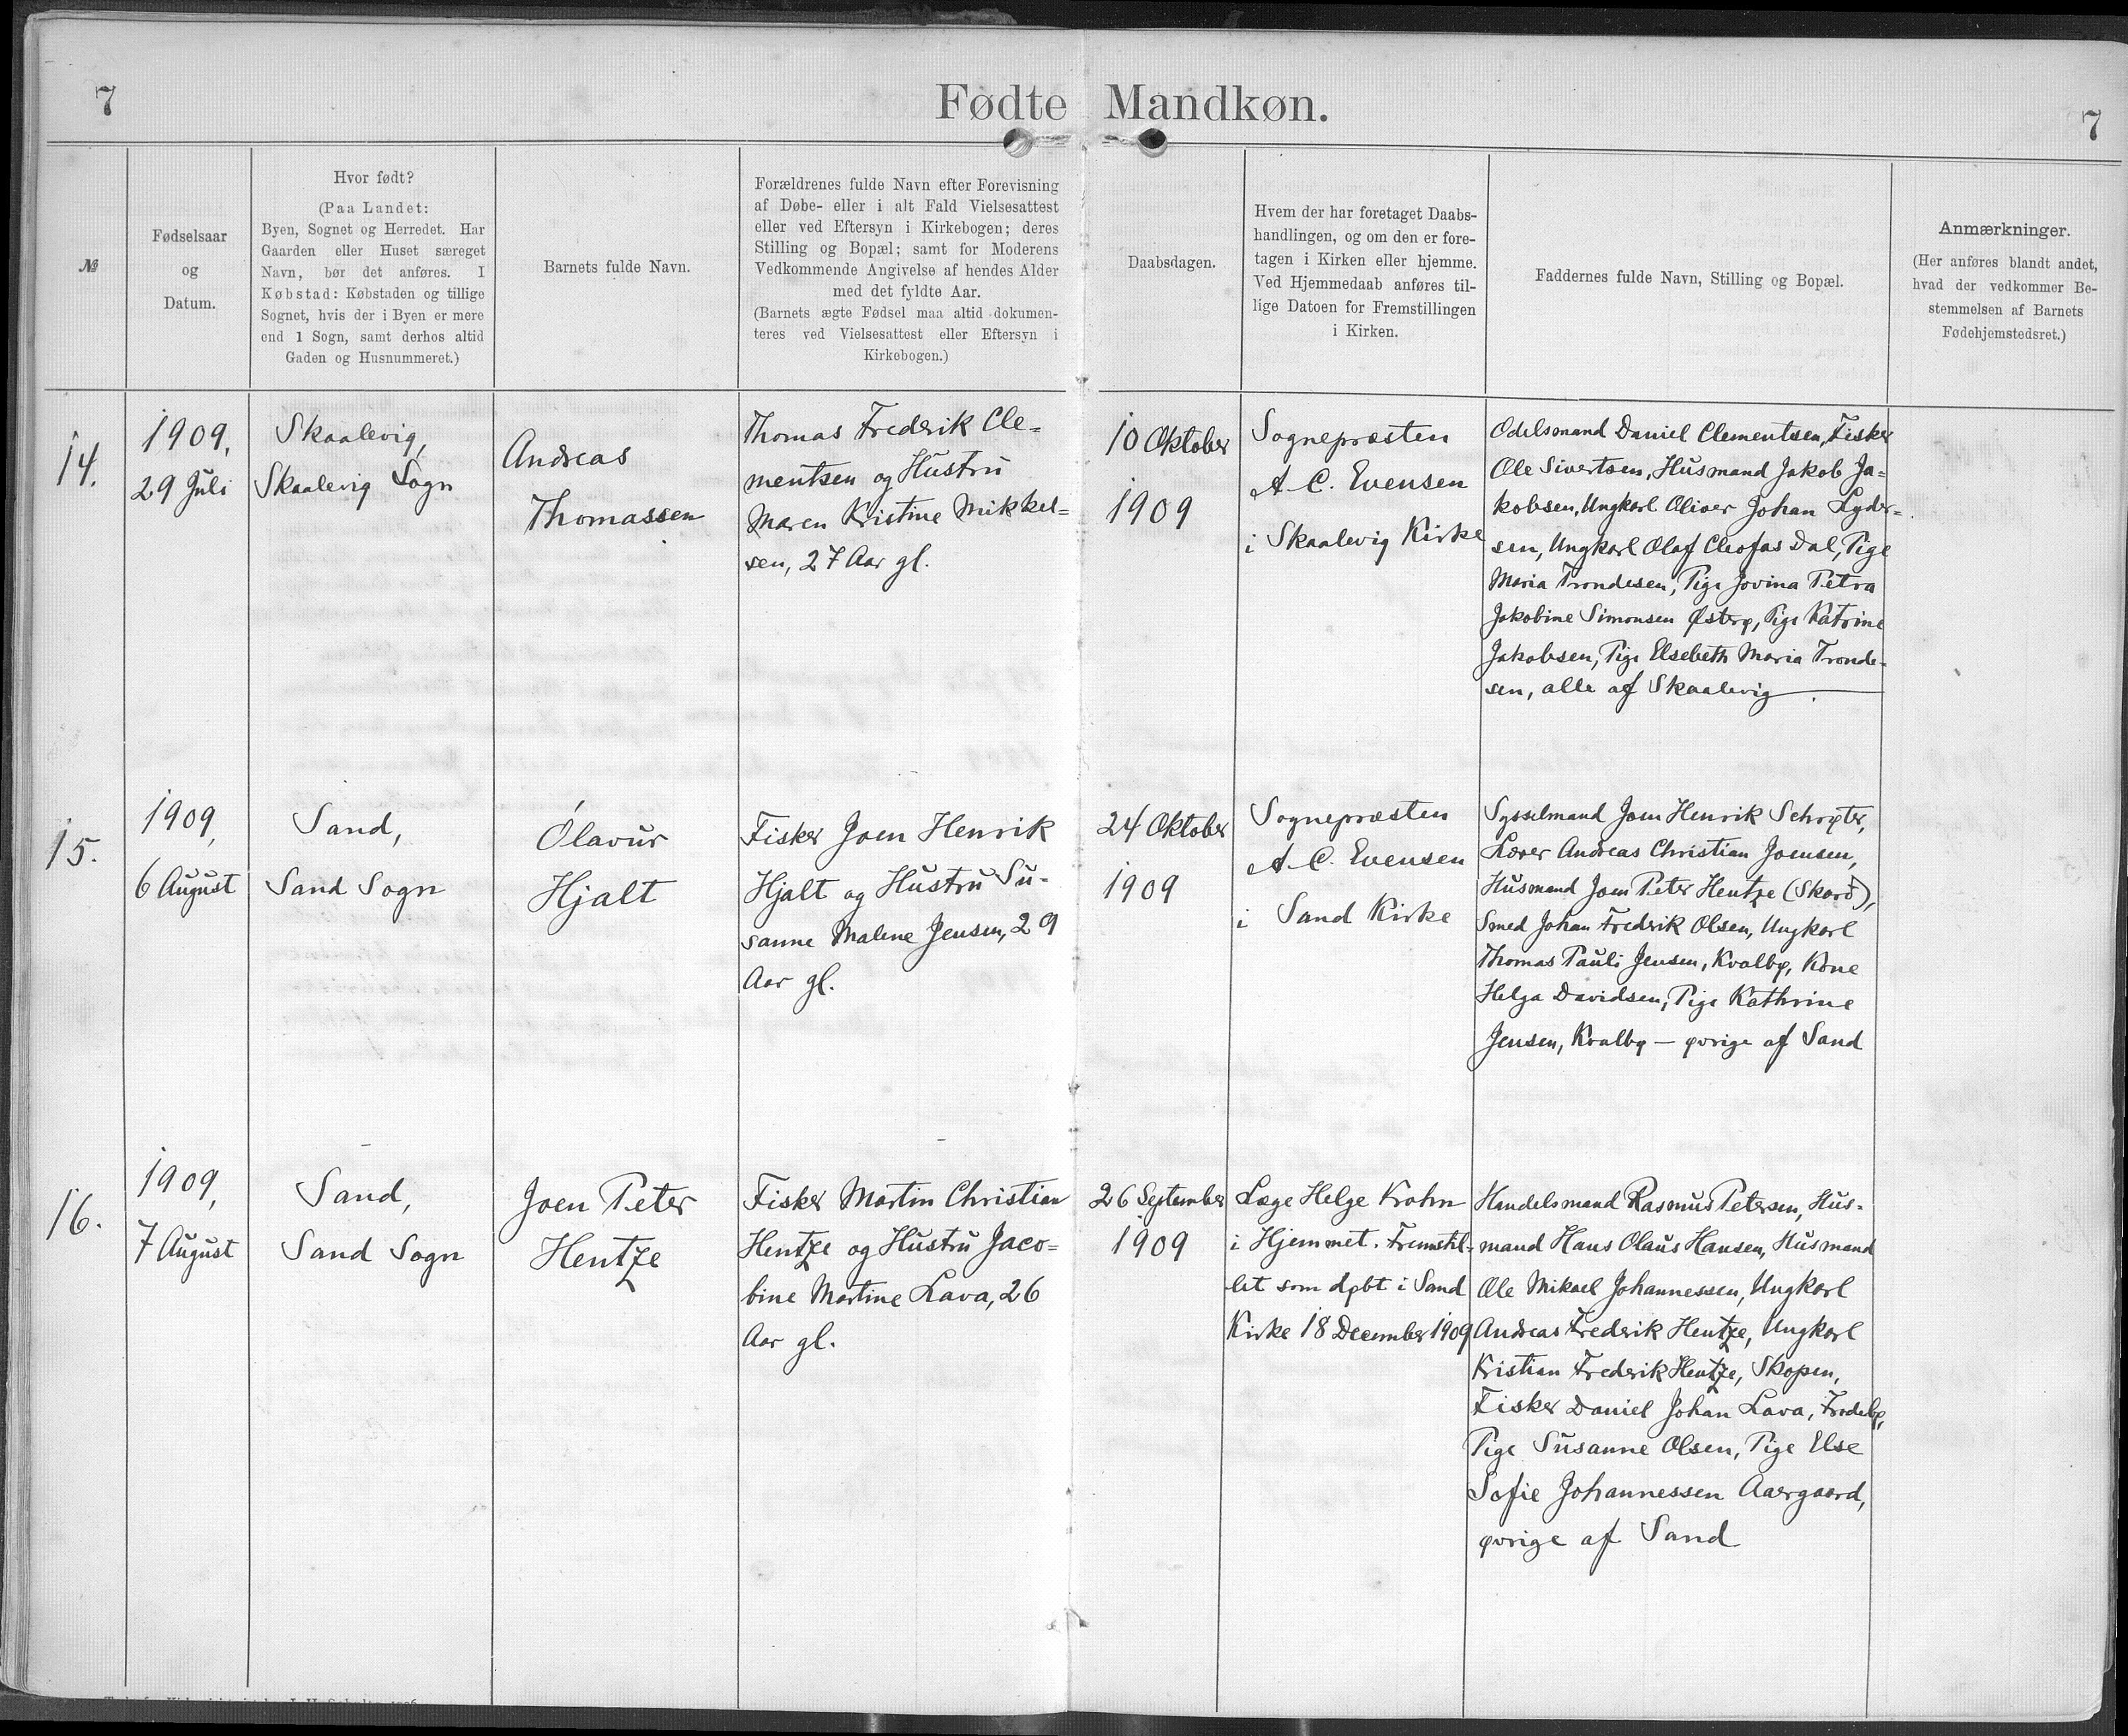 7
Fødte Mandkøn.
7
№
Fødselsaar
og
Datum.
Hvor født?
(Paa Landet:
Byen, Sognet og Herredet. Har
Gaarden eller Huset særeget
Navn, bør det anføres. I
Købstad: Købstaden og tillige
Sognet, hvis der i Byen er mere
end 1 Sogn, samt derhos altid
Gaden og Husnummeret.)
Barnets fulde Navn.
Forældrenes fulde Navn efter Forevisning
af Døbe- eller i alt Fald Vielsesattest
eller ved Eftersyn i Kirkebogen; deres
Stilling og Bopæl; samt for Moderens
Vedkommende Angivelse af hendes Alder
med det fyldte Aar.
(Barnets ægte Fødsel maa altid dokumen-
teres ved Vielsesattest eller Eftersyn i
Kirkebogen.)
Daabsdagen.
Hvem der har foretaget Daabs-
handlingen, og om den er fore-
tagen i Kirken eller hjemme.
Ved Hjemmedaab anføres til-
lige Datoen for Fremstillingen
i Kirken.
Faddernes fulde Navn, Stilling og Bopæl.
Anmærkninger.
(Her anføres blandt andet,
hvad der vedkommer Be-
stemmelsen af Barnets
Fødehjemstedsret.)
14.
1909,
29 Juli
Skaalevig,
Skaalevig Sogn
Andreas
Thomassen
Thomas Frederik Cle-
mentsen og Hustru
Maren Kristine Mikkel-
sen, 27 Aar gl.
10 Oktober
1909
Sognepræsten
A. C. Evensen
i Skaalevig Kirke
Odelsmand Daniel Clementsen, Fisker
Ole Sivertsen, Husmand Jakob Ja-
kobsen, Ungkarl Oliver Johan Lyder-
sen, Ungkarl Olaf Cleofas Dal, Pige
Maria Trondesen, Pige Jovina Petra
Jakobine Simonsen Østerø, Pige Katrine
Jakobsen, Pige Elsebeth Maria Tronde-
sen, alle af Skaalevig.
15.
1909,
6 August
Sand,
Sand Sogn
Ólavur
Hjalt
Fisker Joen Henrik
Hjalt og Hustru Su-
sanne Malene Jensen, 29
Aar gl.
24 Oktober
1909
Sognepræsten
A. C. Evensen
i Sand Kirke
Sysselmand Joen Henrik Schrøter,
Lærer Andreas Christian Joensen,
Husmand Joen Peter Hentze (Skorð),
Smed Johan Frederik Olsen, Ungkarl
Thomas Pauli Jensen, Kvalbø, Kone
Helga Davidsen, Pige Kathrine
Jensen, Kvalbø — øvrige af Sand
16.
1909,
7 August
Sand,
Sand Sogn
Joen Peter
Hentze
Fisker Martin Christian
Hentze og Hustru Jaco-
bine Martine Lava, 26
Aar gl.
26 September
1909
Læge Helge Krohn
i Hjemmet. Fremstil-
let som døbt i Sand
Kirke 18 December 1909
Handelsmand Rasmus Petersen, Hus-
mand Hans Olaus Hansen, Husmand
Ole Mikael Johannessen, Ungkarl
Andreas Frederik Hentze, Ungkarl
Kristian Frederik Hentze, Skopen,
Fisker Daniel Johan Lava, Frodebø,
Pige Susanne Olsen, Pige Else
Sofie Johannessen Aargaard,
øvrige af Sand